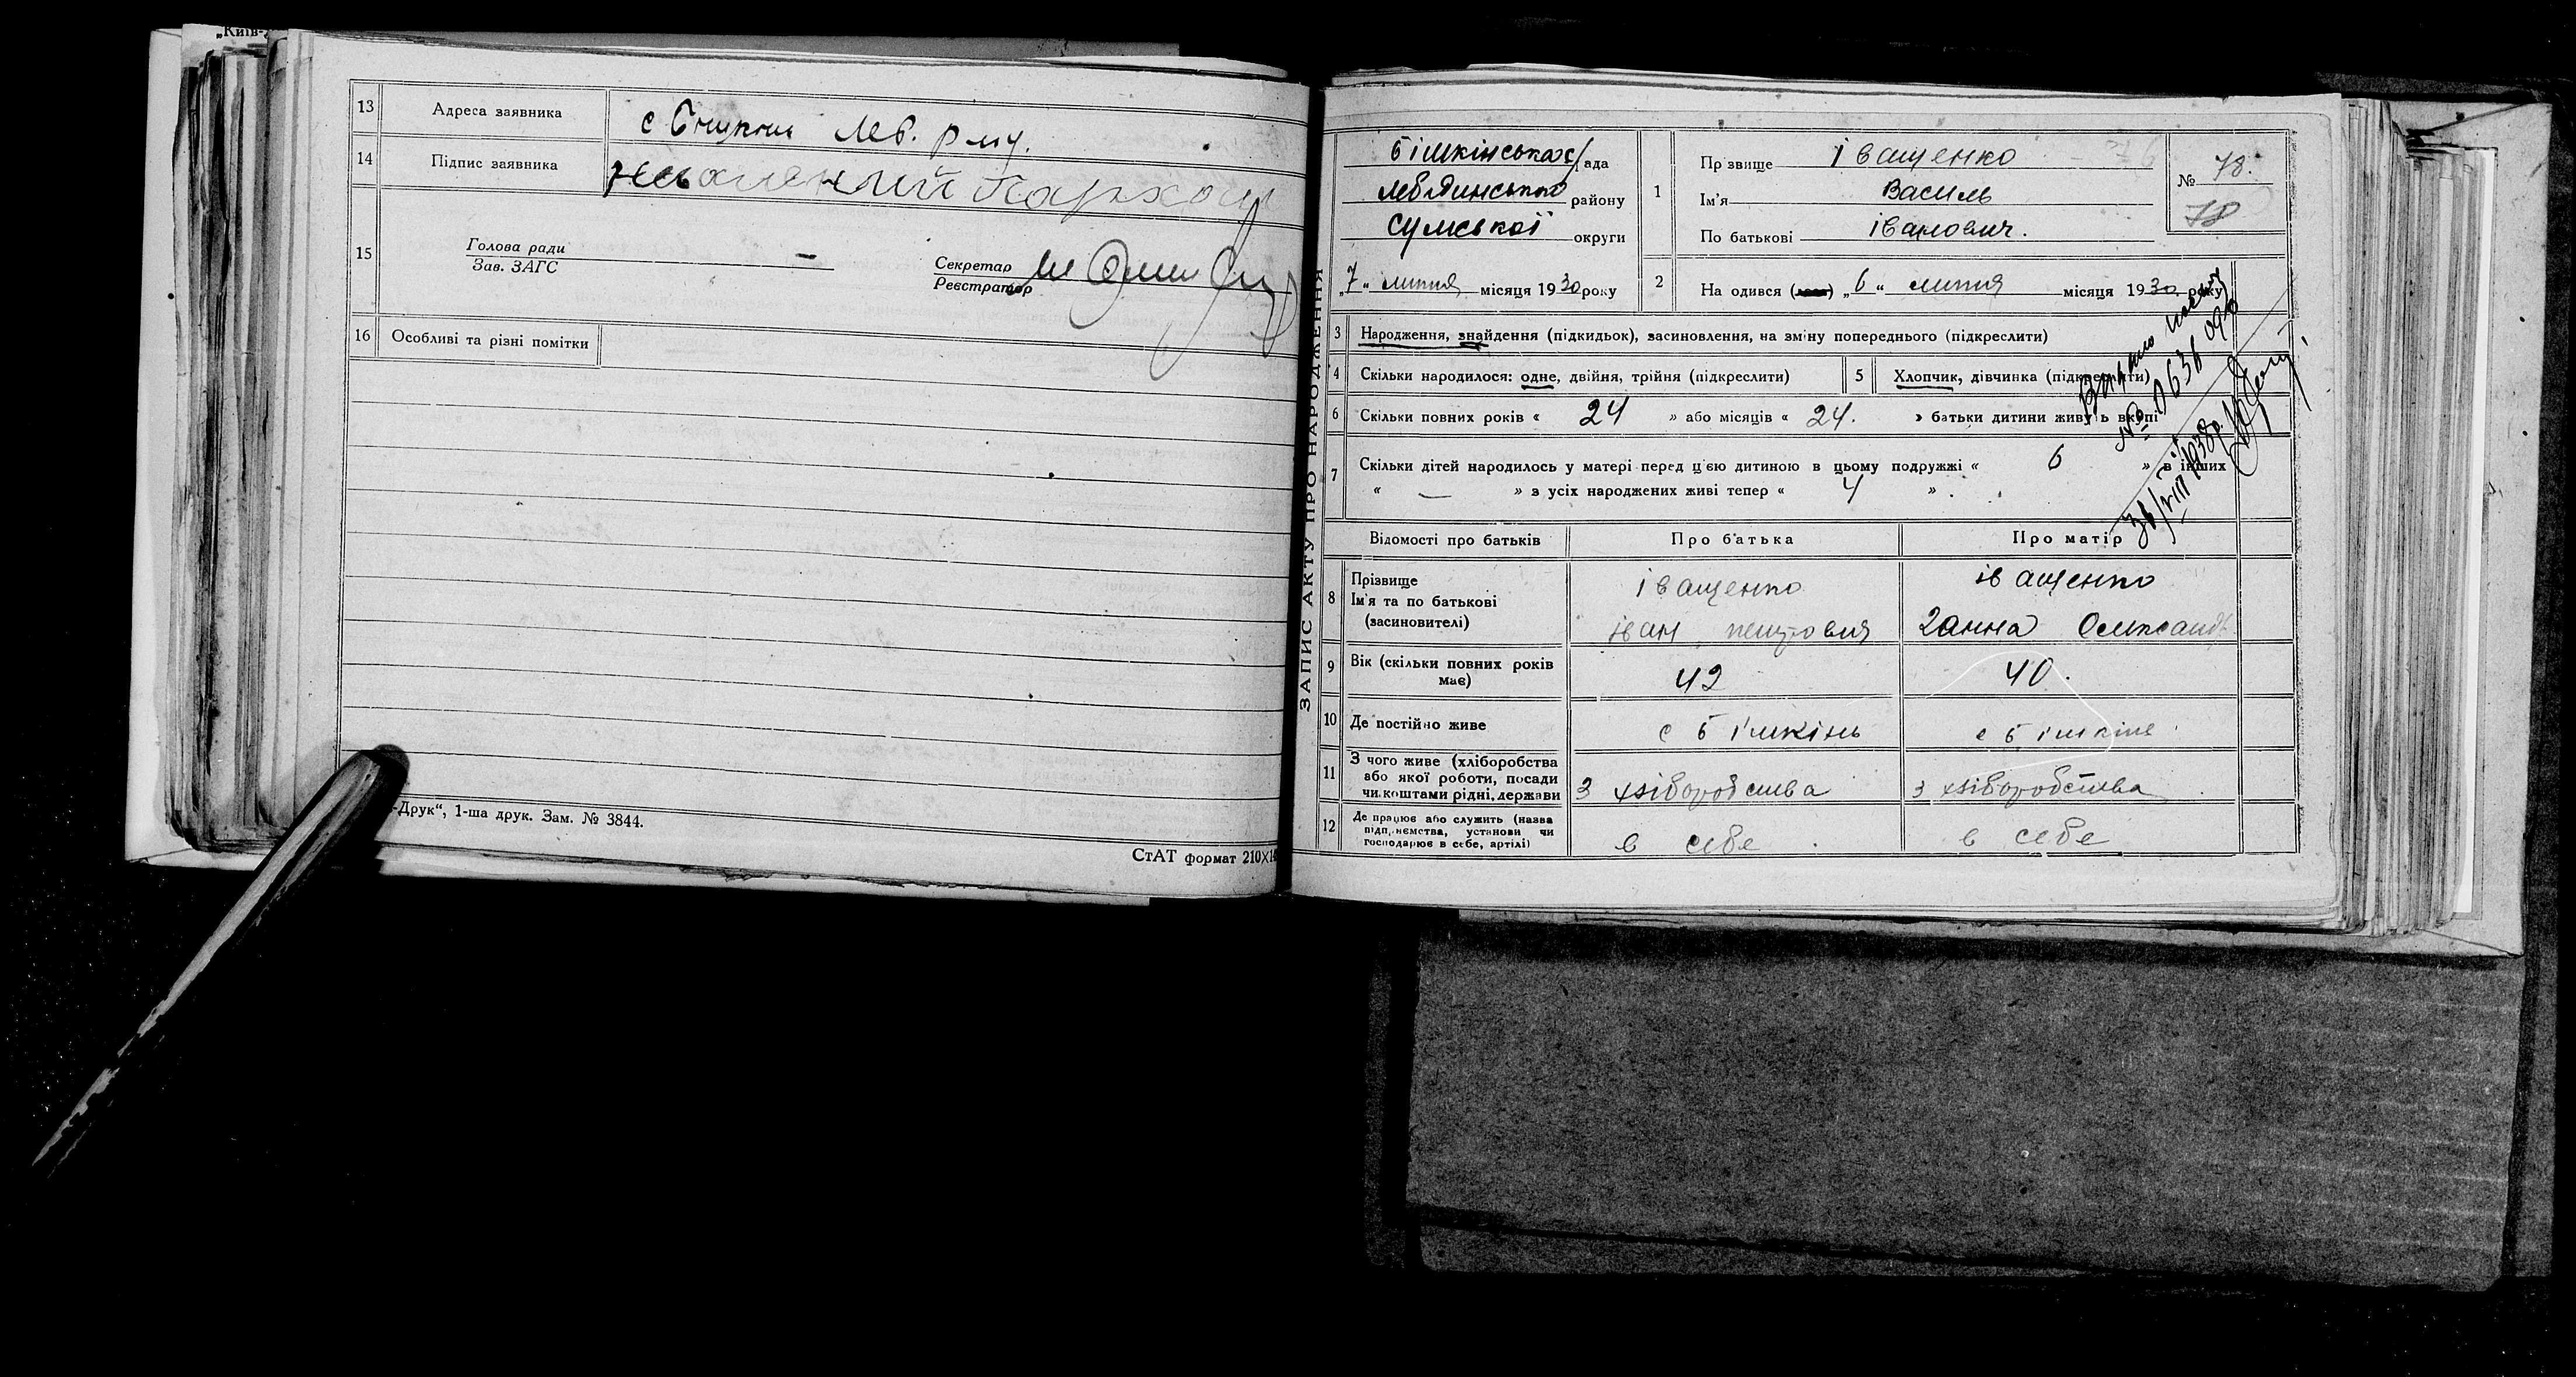 „Київ-
13 Адреса заявника с Бишкинь Леб. р
14 Підпис заявника Пархом
15 Голова ради
Зав. ЗАГС
Секретар
Реєстратор
16 Особливі та різні помітки
-Друк“, 1-ша друк. Зам. № 3844.
СтАТ формат 210×1
ЗАПИС АКТУ ПРО НАРОДЖЕННЯ
бішкінська с/рада
Лебединського району
Сумської округи
„7“ липня місяця 1930 року
1 Пр звище Іващенко
Ім'я Василь
По батькові іванович.
№ 78.
78
2 На одився „6“ липня місяця 1930 року
3 Народження, знайдення (підкидьок), засиновлення, на зміну попереднього (підкреслити)
4 Скільки народилося: одне, двійня, трійня (підкреслити)
5 Хлопчик, дівчинка (підкреслити)
6 Скільки повних років « 24 » або місяців « 24. » батьки дитини живуть вкопі
7 Скільки дітей народилось у матері перед цією дитиною в цьому подружжі « 6 » в інших
« — » з усіх народжених живі тепер « 4 ».
Відомості про батьків Про батька Про матір
8 Прізвище
Ім'я та по батькові
(засновителі)
іващенко
іван петрович
іващенко
Ганна Олександ
9 Вік (скільки повних років має) 42 40.
10 Де постійно живе с бішкінь с бішкінь
11 З чого живе (хліборобства
або якої роботи, посади
чи коштами рідні, держави
з хліборобства з хліборобства
12 Де працює або служить (назва
підприємства, установи чи
господарює в себе, артілі)
в себе в себе